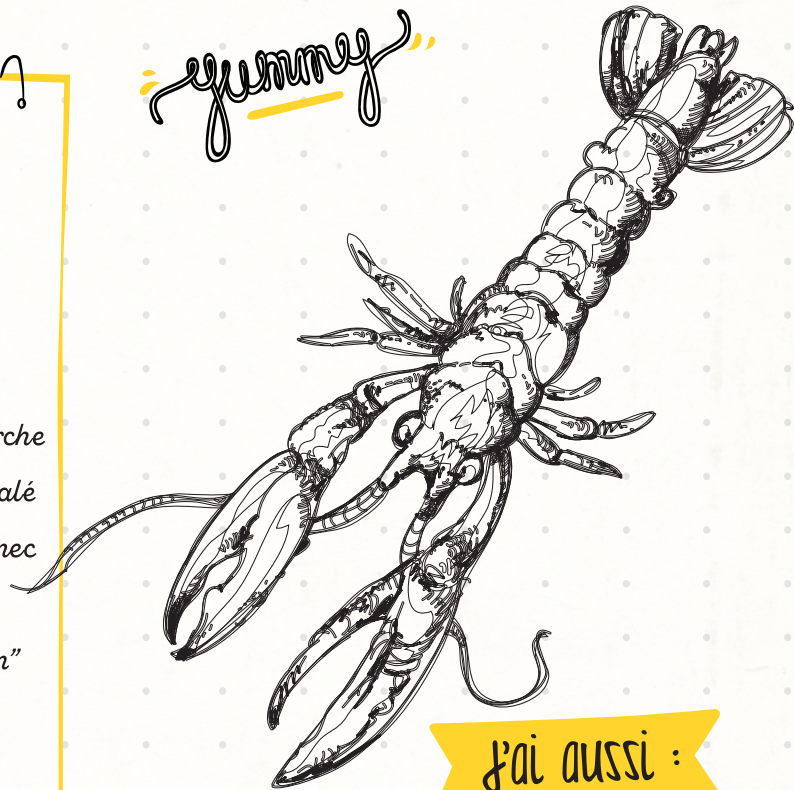 yummy
rche
alé
nec
n”
J'ai aussi :